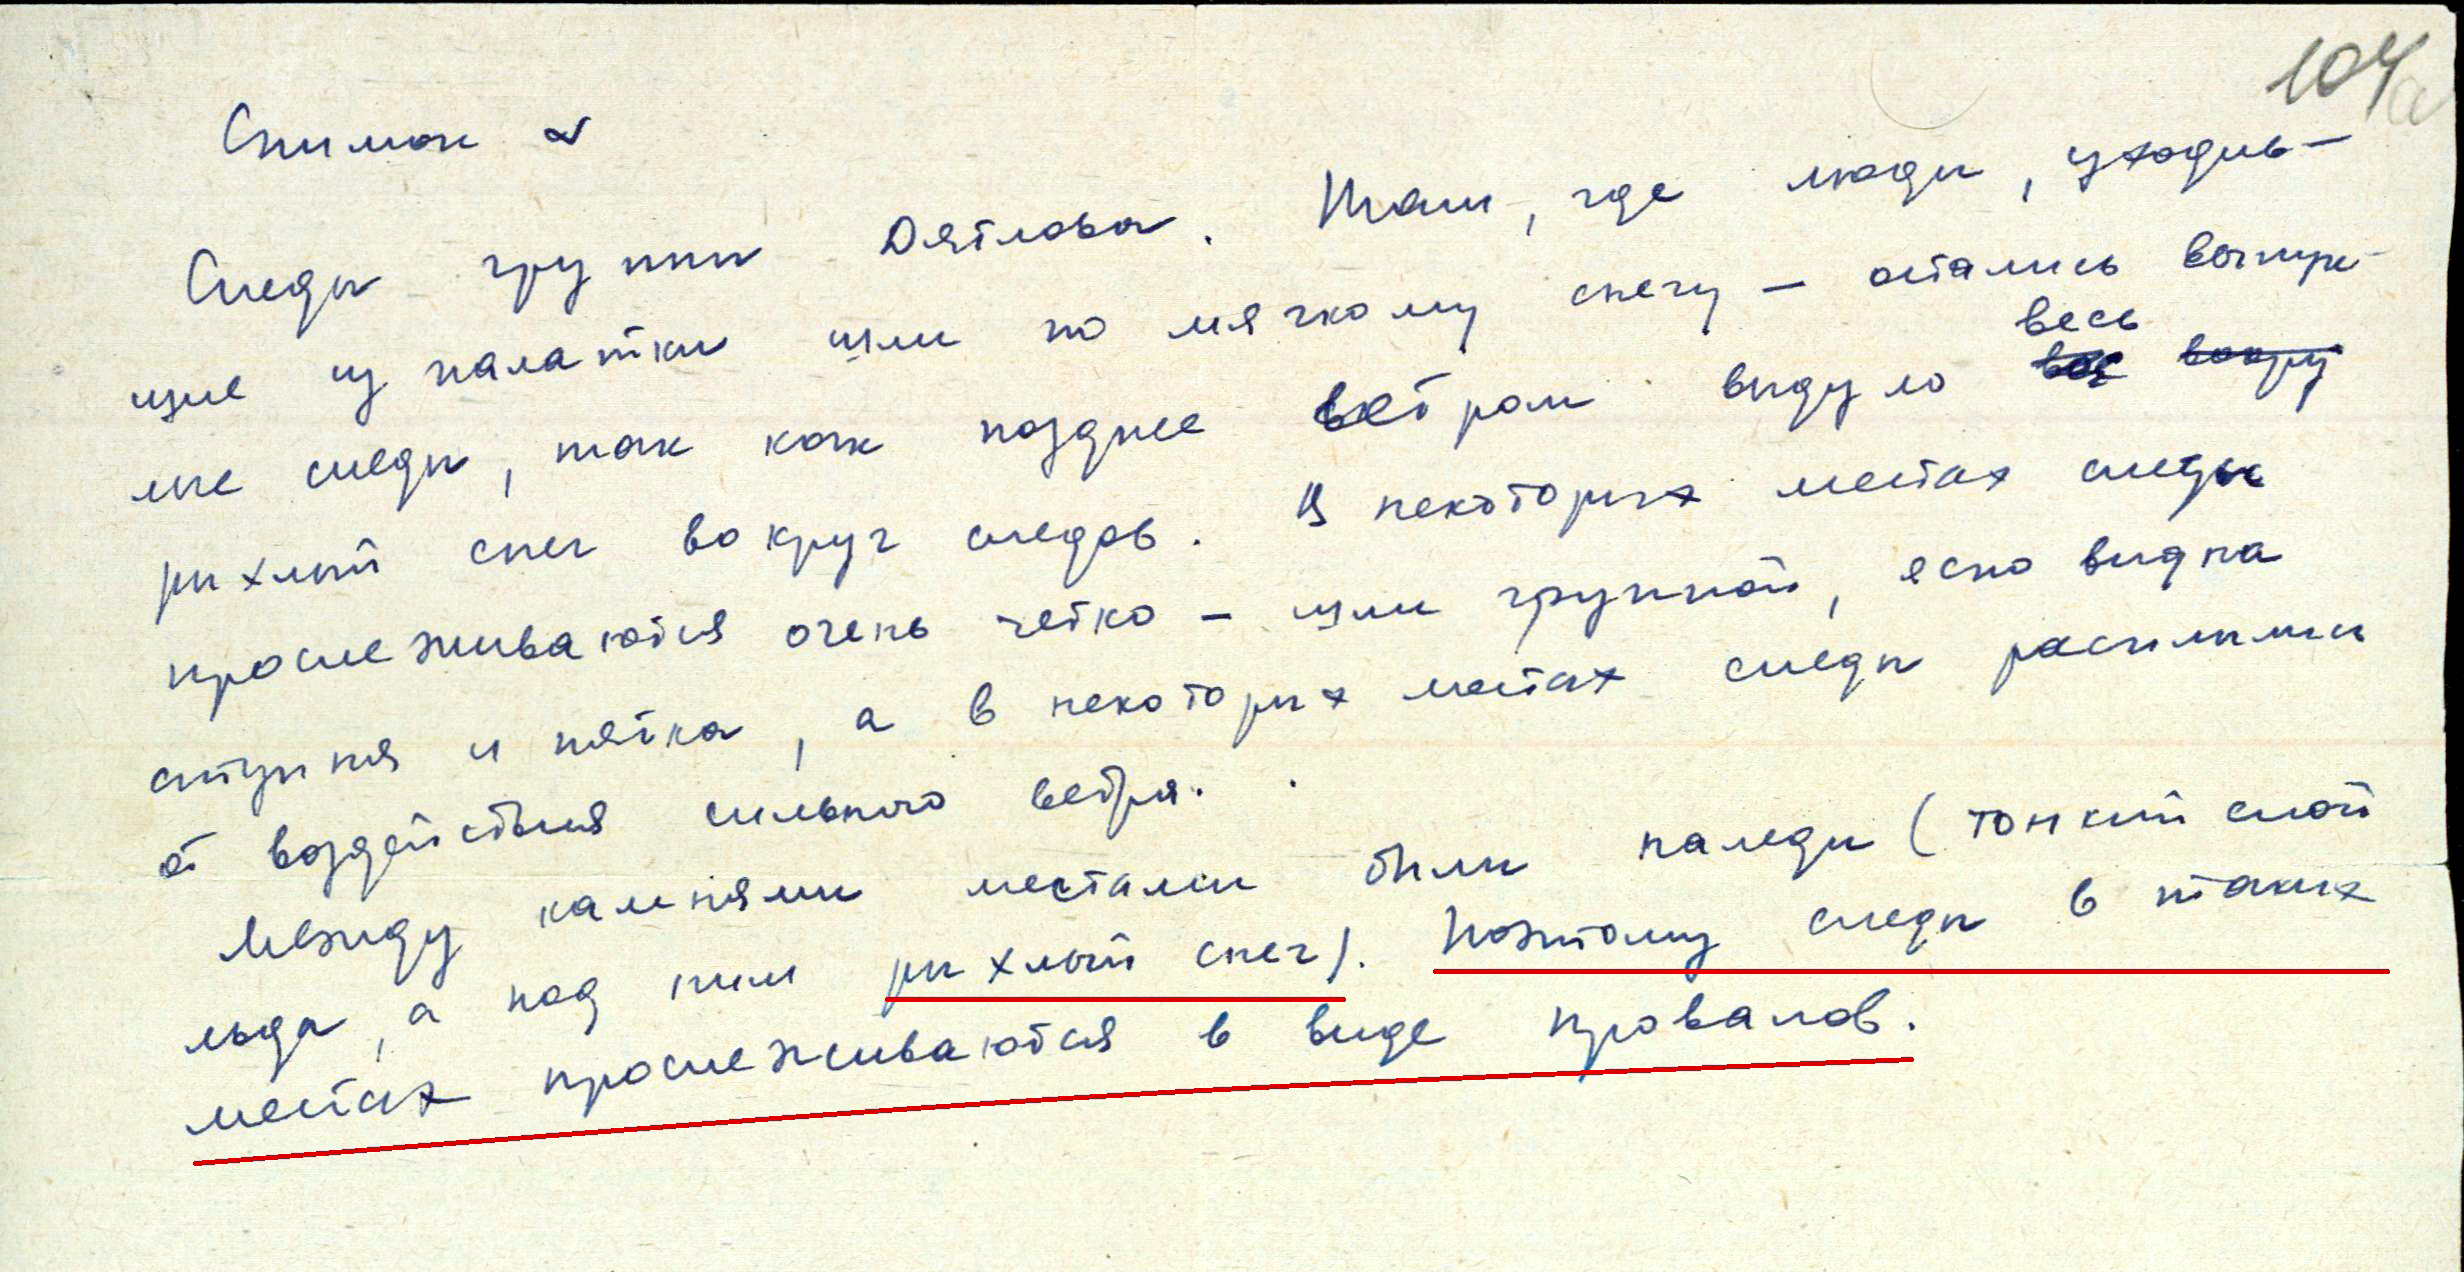 104а
Снимок №
Следы группы Дятлова. Там, где люди, уходив-
шие из палатки шли по мягкому снегу – остались выпук-
лые следы, так как позднее ветром выдуло весь вокруг
рыхлый снег вокруг следов. В некоторых местах следы
прослеживаются очень четко – шли группой, ясно видна
ступня и пятка, а в некоторых местах следы расплылись
от воздействия сильного ветра.
Между камнями местами были наледи (тонкий слой
льда, а под ним рыхлый снег). Поэтому следы в таких
местах прослеживаются в виде провалов.